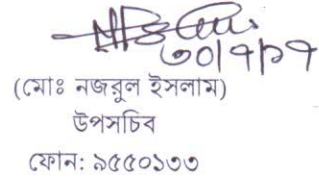 ৩০/৭/১৭
(মোঃ নজরুল ইসলাম)
উপসচিব
ফোন: ৯৫৫০১৩৩